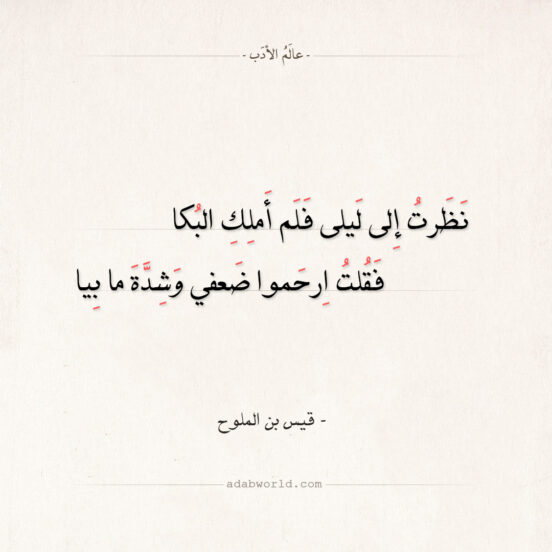 - عالَمُ الأدَب -
نَظَرتُ إِلى لَيلى فَلَم أَملِكِ البُكا
فَقُلتُ اِرحَموا ضَعفي وَشِدَّةَ ما بِيا
- قيس بن الملوح
adabworld.com